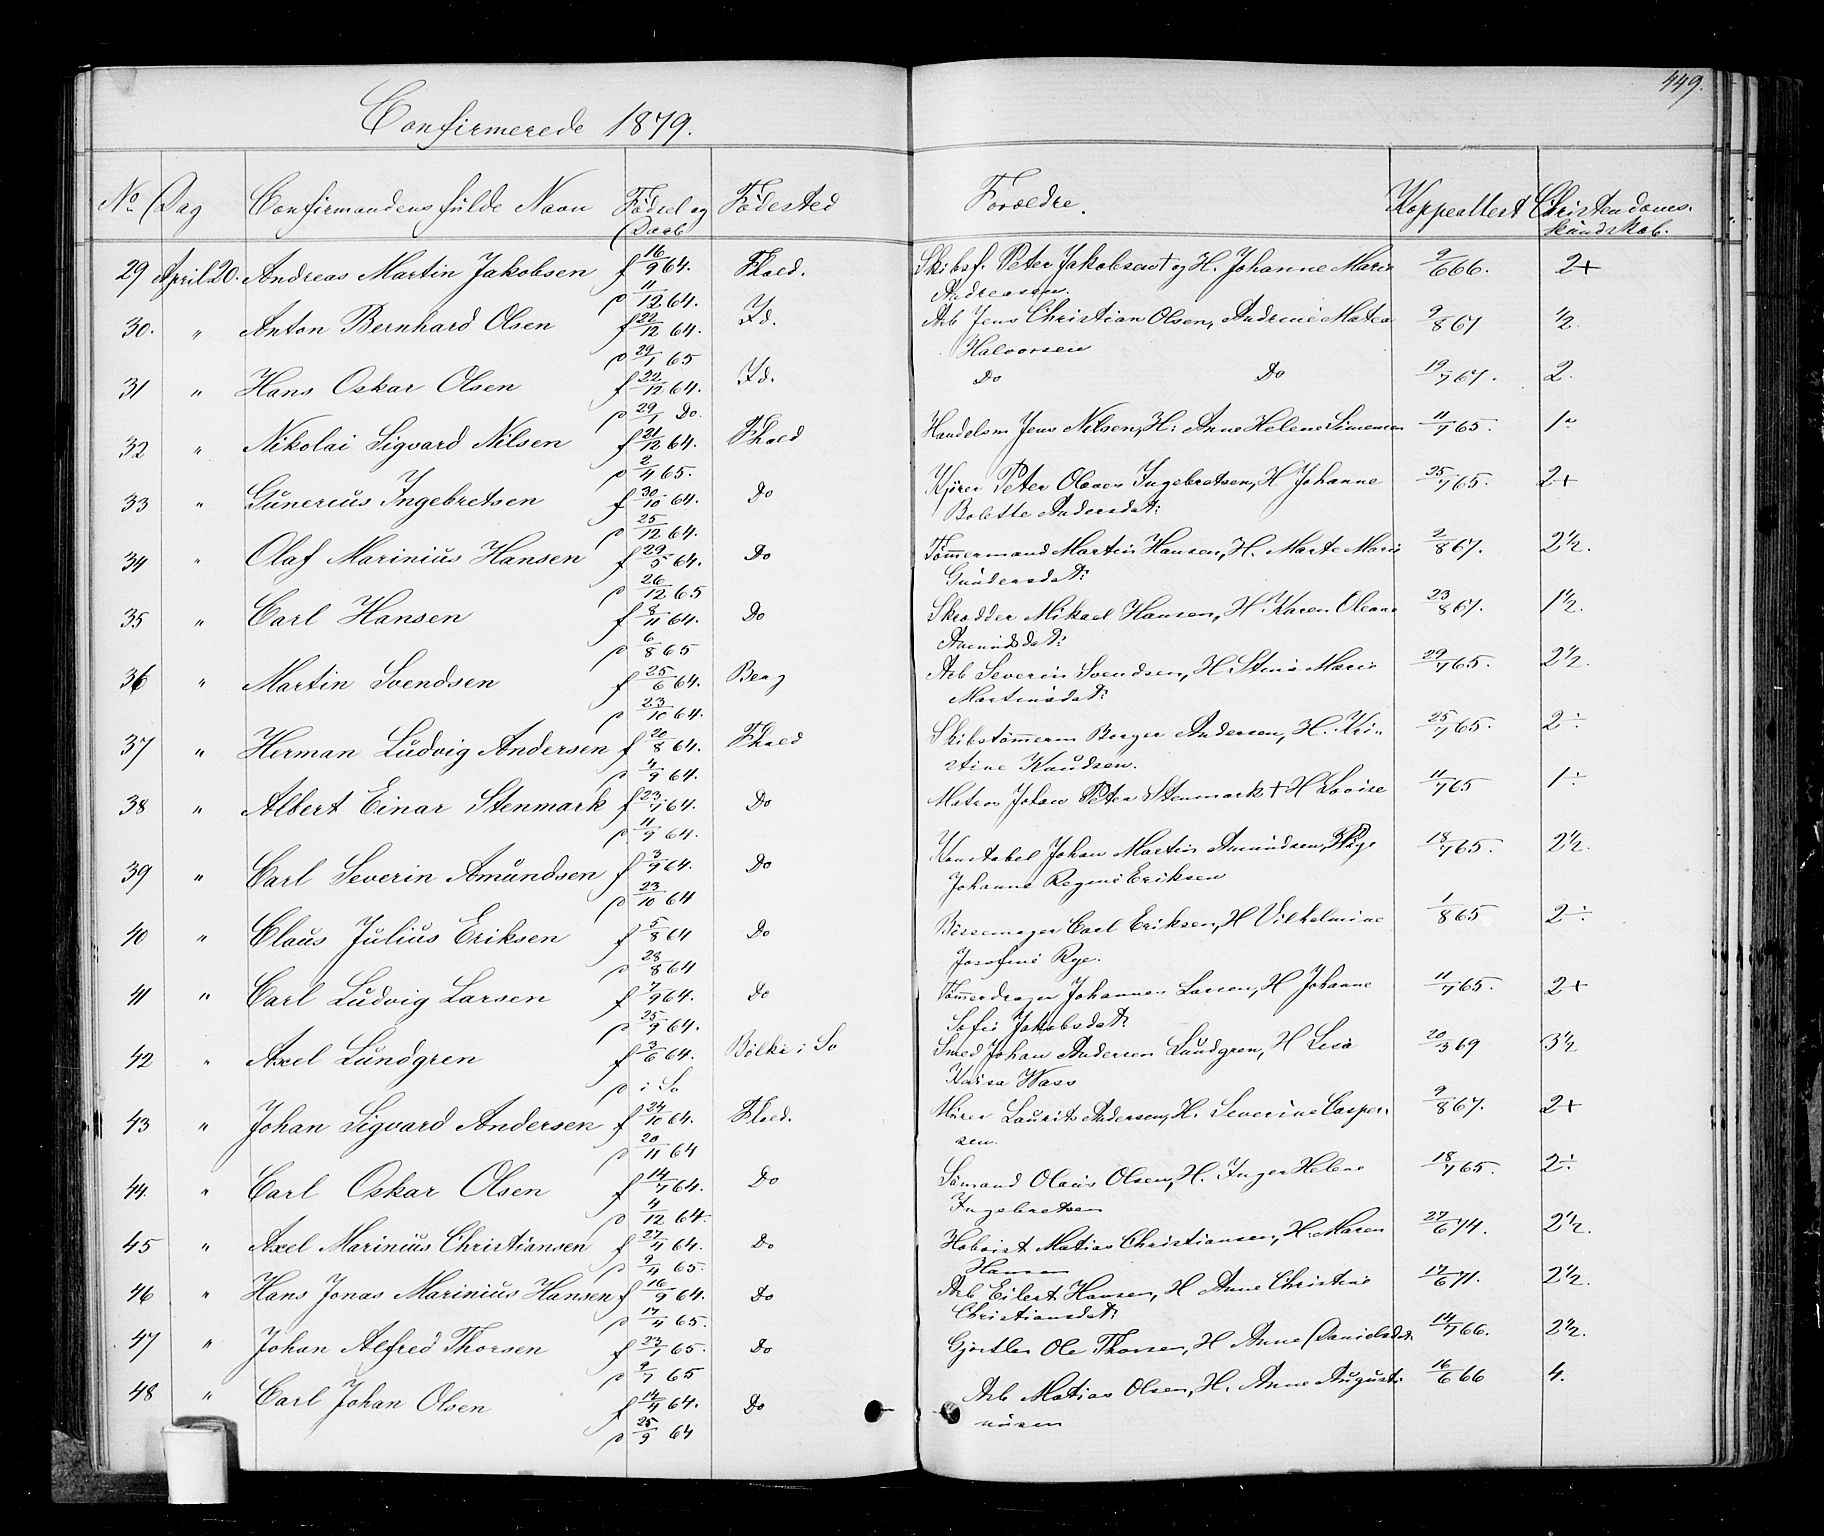 449.
Confirmerede 1879.
No Dag Confirmandens fulde Navn Fødsel og Daab Fødested Forældre. Koppeattest Christendoms-kundskab.
29 April 20. Andreas Martin Jakobsen f 16/9 64. Fhald. Skibsf. Peter Jakobsen † og H. Johanne Marie 9/6 66. 2+
p 11/12 64. Andreasen.
30. " Anton Bernhard Olsen f 22/12 64. Id. Arb Jens Christian Olsen, Andrine Matea 9/8 67 1/2.
p 29/1 65 Halvorsen
31 " Hans Oskar Olsen f 22/12 64. Id. Do Do 19/7 67. 2.
p 29/1 Do.
32 " Nikolai Sigvard Nilsen f 21/12 64. Fhald Handelsm Jens Nilsen, H. Anne Helene Simensen 11/7 65. 1
p 2/4 65.
33 " Gunerius Ingebretsen f 30/10 64. Do Kjører Peter Olaves Ingebretsen, H Johanne 25/7 65. 2+
p 25/12 64. Bolette Andersdat:
34 " Olaf Marinius Hansen f 29/5 64. Do Tømmermand Martin Hansen, H. Marte Marie 2/8 67. 2 1/2.
p 26/12 65 Gundersdat:
35 " Carl Hansen f 8/11 64. Do Skrædder Mikael Hansen, H. Karen Oleane 23/8 67. 1 1/2.
p 6/8 65 Amundsdat:
36 " Martin Svendsen f 25/6 64. Berg Arb Severin Svendsen, H. Stine Marie 29/7 65. 2 1/2.
p 23/10 64. Martinsdat:
37 " Herman Ludvig Andersen f 20/8 64. Fhald Skibstømerm Borger Andersen, H. Kri- 25/7 65. 2÷
p 4/9 64. stine Knudsen.
38 " Albert Einar Stenmark f 23/7 64. Do Matros Johan Peter Stenmark † H Lovise 11/7 65 1÷
p 11/9 64.
39 " Carl Severin Amundsen f 3/9 64. Do Konstabel Johan Martin Amundsen, Pige 18/7 65. 2 1/2.
p 23/10 64 Johanne Regine Eriksen
40 " Claus Julius Eriksen f 5/8 64 Do Børssemager Carl Eriksen, H Vilhelmine 1/8 65 2÷
p 28/8 64 Josefine Rye.
41 " Carl Ludvig Larsen f 7/9 64. Do Tømerdrager Johannes Larsen, H Johanne 11/7 65. 2+
p 25/9 64. Sofie Jakobsdat:
42 " Axel Lundgren f 3/6 64. Bölke i So Smed Johan Andersen Lundgren, H Lisa 20/3 69 3 1/2
p i So Kaisa Wass
43 " Johan Sigvard Andersen f 24/10 64. Fhald. Murer Laurits Andersen, H. Severine Casper- 9/8 67. 2+
p 20/11 64 sen.
44. " Carl Oskar Olsen f 14/7 64. Do Sömand Olaus Olsen, H. Inger Helene 18/7 65. 2÷
p 4/12 64. Ingebretsen
45 " Axel Marinius Christiansen f 27/11 64. Do Hoboist Matias Christiansen, H. Maren 27/6 74. 2 1/2.
p 9/4 65. Hansen
46 " Hans Jonas Marinius Hansen f 16/9 64. Do Arb Eilert Hansen, H Anne Christine 17/6 71. 2 1/2.
p 17/4 65. Christiansdat:
47 " Johan Alfred Thorsen f 23/1 65. Do Gjørtler Ole Thorsen, H Anne Danielsdat. 14/7 66. 2 1/2.
p 9/7 65
48 " Carl Johan Olsen f 14/4 64. Do Arb Matias Olsen, H. Anne Augusti- 16/6 66 4.
p 25/9 64 nusen